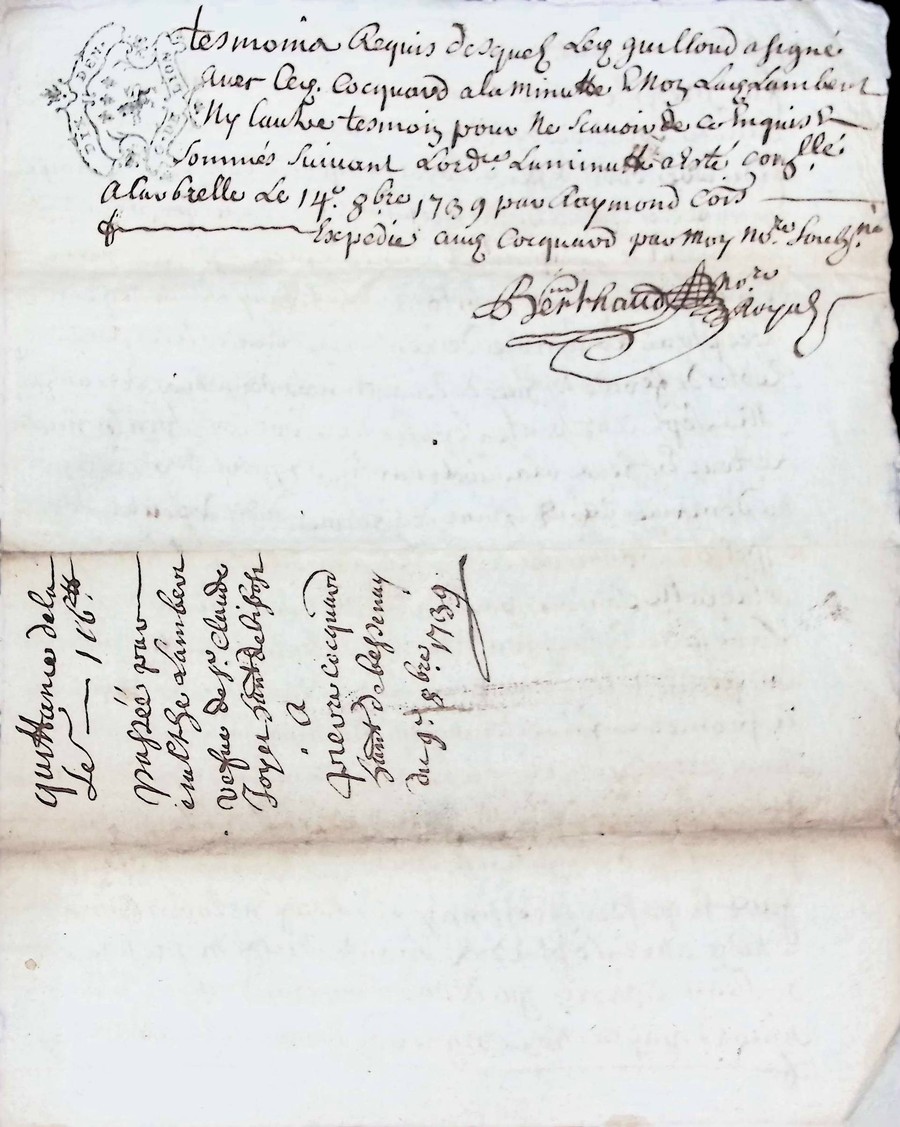 tesmoins Requis desquels Led guilloud a signé
avec led. Cocquard a la minutte & non lad Lambert
Ny lautre tesmoin pour ne scavoir de ce Enquis &
sommés suivant Lord.ce La minutte a esté conllée
A larbrelle Le 14.e 8.bre 1739 par Raymond Cois
Expedié aud Cocquard par moy No.re Soubs.né
Berthaud No.re Royal
quittance de la
Se 116.tt
passée par
Lambert
vefue de s.r Claude
Joyet
A
pierre Cocquard
hant de bessenay
du 9.e 8.bre 1739